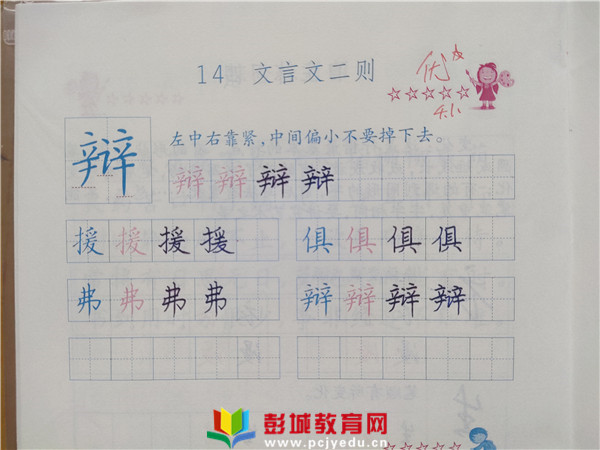 14 文言文二则
优
4.1
辩
左中右靠紧,中间偏小不要掉下去。
辩 辩 辩 辩
援 援 援 援 俱 俱 俱 俱
弗 弗 弗 弗 辩 辩 辩 辩
彭城教育网
www.pcjyedu.cn